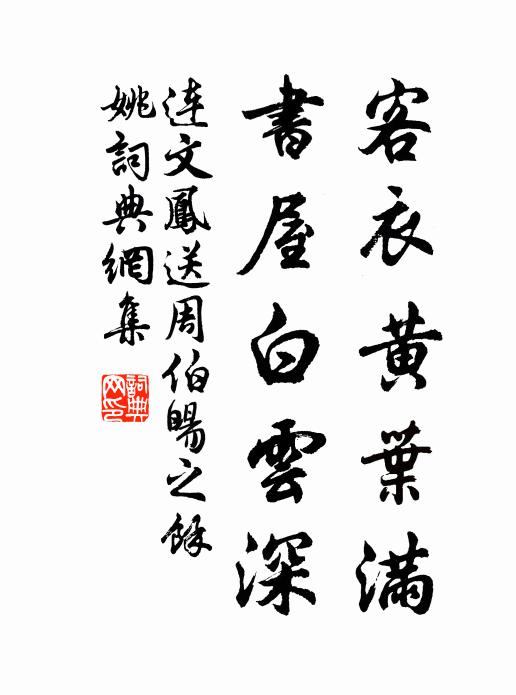 客衣黃葉滿
書屋白雲深
連文鳳送周伯暘之餘
姚詞典網集
詞典网印